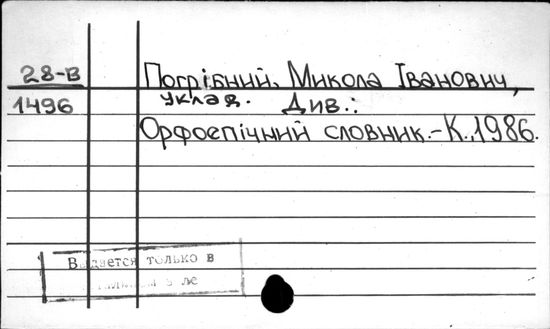 28-В
Погрібний, Микола Іванович,
1496
уклад. Див.:
Орфоепічний словник.-К.,1986.
Выдается только в